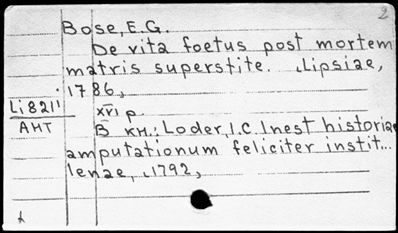 2
Bose, E.G.
De vita foetus post mortem
matris superstite. Lipsiae,
1786,
Li8211
AHT
XVI p.
В кн.: Loder, I.C. Inest historiae
amputationum feliciter instit...
Ienae, 1792,